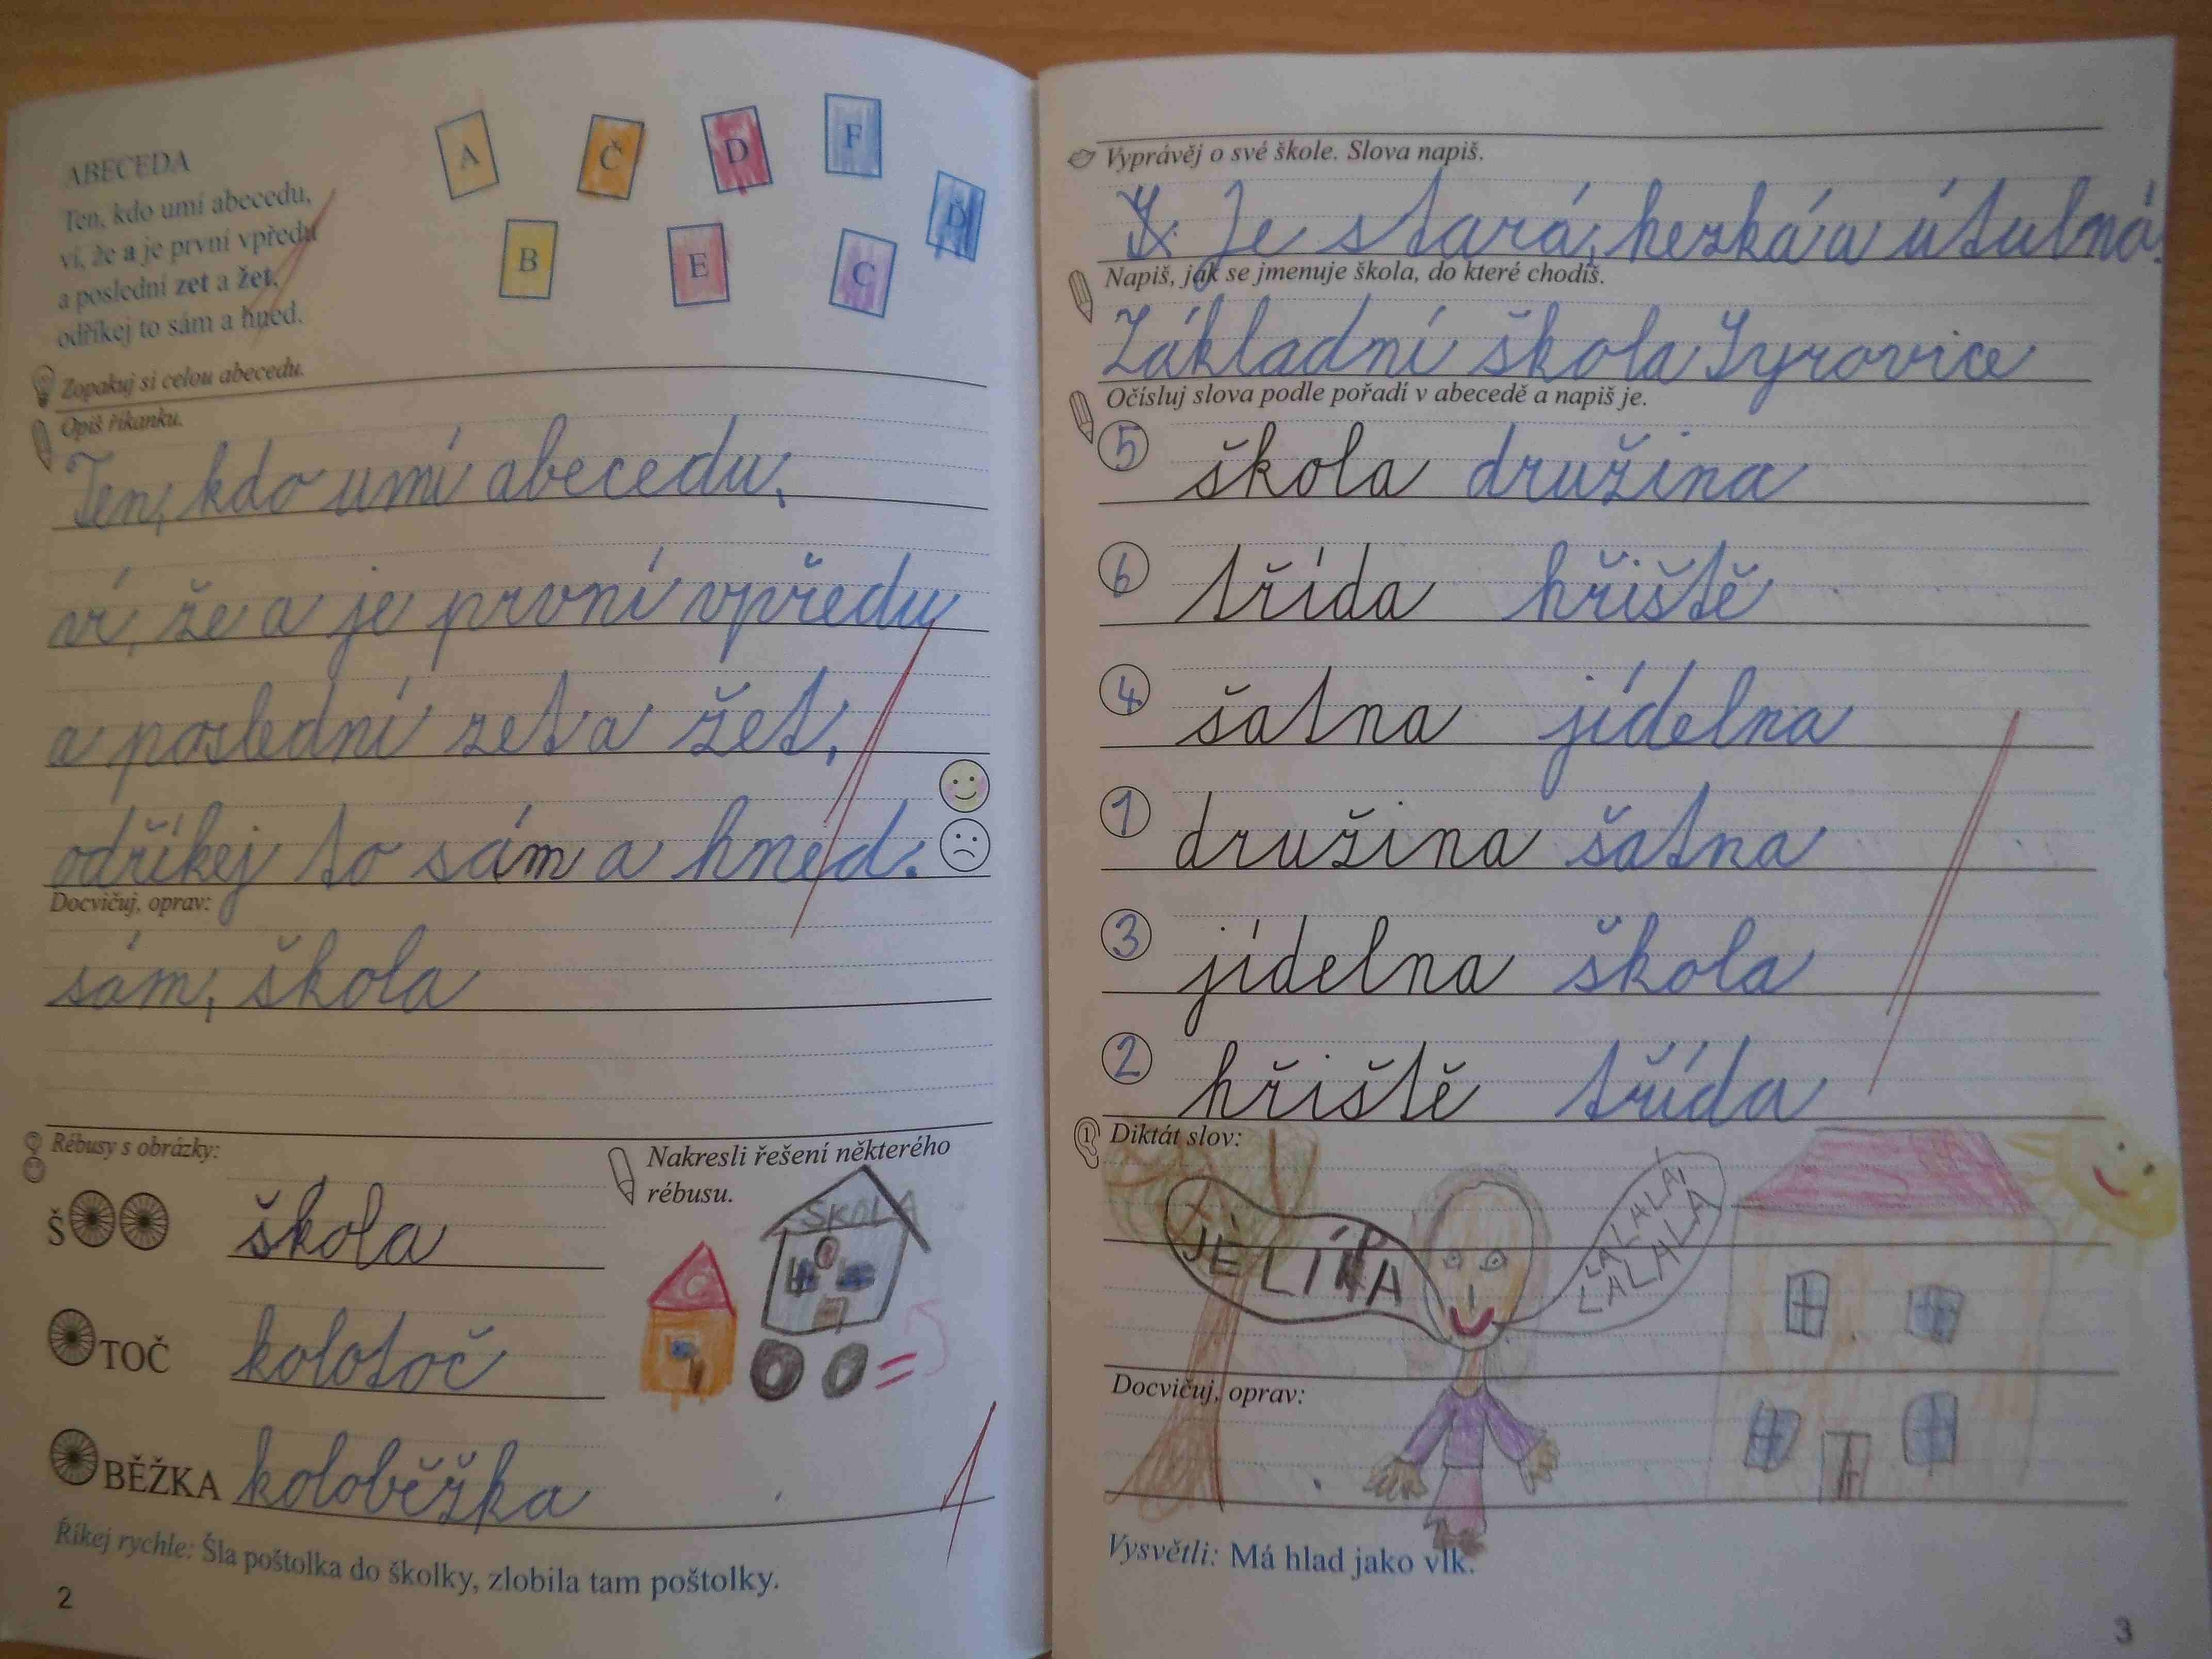 ABECEDA
Ten, kdo umí abecedu,
ví, že a je první vpředu
a poslední zet a žet,
odříkej to sám a hned.
A Č D F
B E C Ď
Zopakuj si celou abecedu.
Opiš říkanku.
Ten, kdo umí abecedu,
ví, že a je první vpředu
a poslední zet a žet,
odříkej to sám a hned.
Docvičuj, oprav:
sám, škola
Rébusy s obrázky:
Nakresli řešení některého
rébusu.
Š škola
TOČ koloToč
BĚŽKA koloběžka
ŠKOLA
Říkej rychle: Šla poštolka do školky, zlobila tam poštolky.
2
Vyprávěj o své škole. Slova napiš.
Je stará, hezká a útulná.
Napiš, jak se jmenuje škola, do které chodíš.
Základní škola Syrovice
Očísluj slova podle pořadí v abecedě a napiš je.
5 škola družina
6 třída hřiště
4 šatna jídelna
1 družina šatna
3 jídelna škola
2 hřiště třída
1 Diktát slov:
LALALÁ,
LALALA
Docvičuj, oprav:
Vysvětli: Má hlad jako vlk.
3